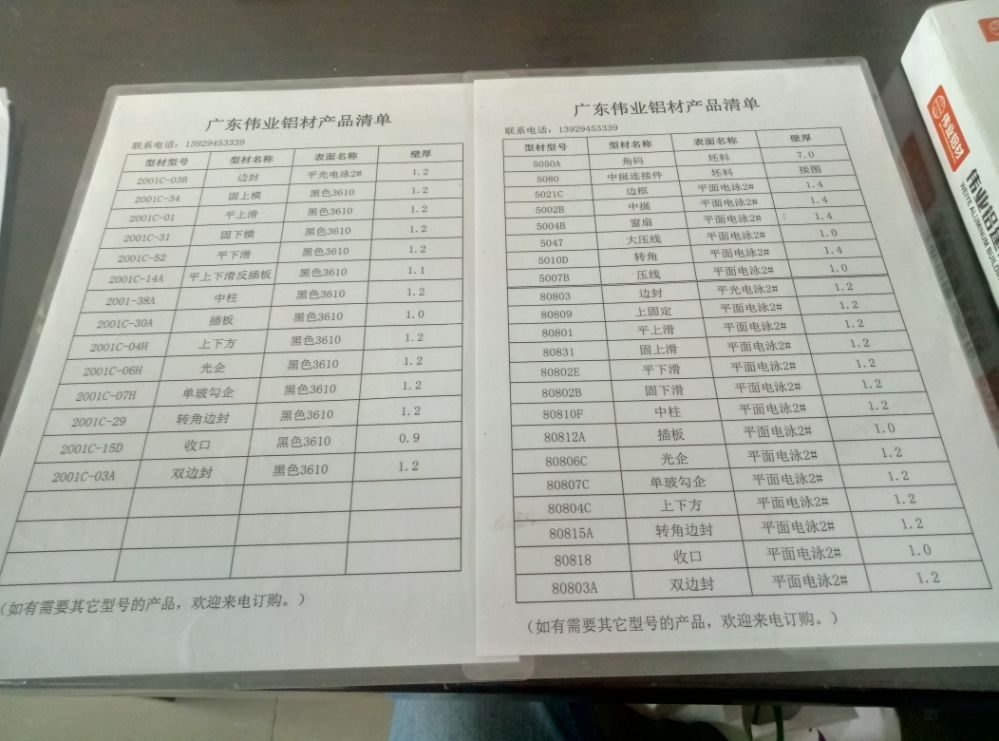 广东伟业铝材产品清单
联系电话：13929453339
型材型号 型材名称 表面名称 壁厚
2001C-03B 边封 平光电泳2# 1.2
2001C-34 固上横 黑色3610 1.2
2001C-01 平上滑 黑色3610 1.2
2001C-31 固下横 黑色3610 1.2
2001C-52 平下滑 黑色3610 1.2
2001C-14A 平上下滑反插板 黑色3610 1.1
2001-38A 中柱 黑色3610 1.2
2001C-30A 插板 黑色3610 1.0
2001C-04H 上下方 黑色3610 1.2
2001C-06H 光企 黑色3610 1.2
2001C-07H 单玻勾企 黑色3610 1.2
2001C-29 转角边封 黑色3610 1.2
2001C-15D 收口 黑色3610 0.9
2001C-03A 双边封 黑色3610 1.2
（如有需要其它型号的产品，欢迎来电订购。）
广东伟业铝材产品清单
联系电话：13929453339
型材型号 型材名称 表面名称 壁厚
5050A 角码 坯料 7.0
5080 中挺连接件 坯料 接图
5021C 边框 平面电泳2# 1.4
5002B 中挺 平面电泳2# 1.4
5004B 窗扇 平面电泳2# 1.4
5047 大压线 平面电泳2# 1.0
5010D 转角 平面电泳2# 1.4
5007B 压线 平面电泳2# 1.0
80803 边封 平光电泳2# 1.2
80809 上固定 平面电泳2# 1.2
80801 平上滑 平面电泳2# 1.2
80831 固上滑 平面电泳2# 1.2
80802E 平下滑 平面电泳2# 1.2
80802B 固下滑 平面电泳2# 1.2
80810F 中柱 平面电泳2# 1.2
80812A 插板 平面电泳2# 1.0
80806C 光企 平面电泳2# 1.2
80807C 单玻勾企 平面电泳2# 1.2
80804C 上下方 平面电泳2# 1.2
80815A 转角边封 平面电泳2# 1.2
80818 收口 平面电泳2# 1.0
80803A 双边封 平面电泳2# 1.2
（如有需要其它型号的产品，欢迎来电订购。）
伟业铝材
伟业铝
WEIYE ALUMINUM